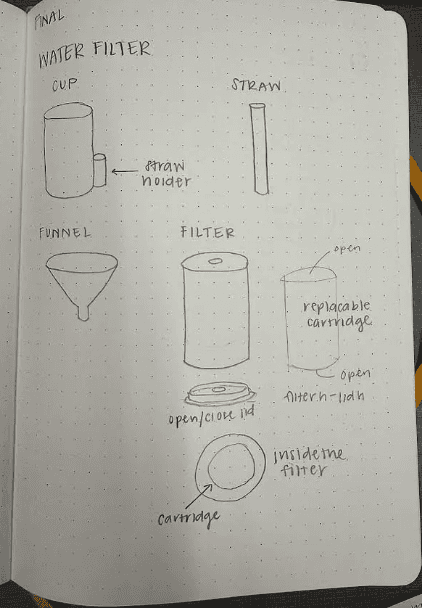 FINAL
WATER FILTER
CUP
STRAW
straw
holder
FUNNEL
FILTER
open
replacable
cartridge
open
open/close lid
filter h - lid h
inside the
filter
cartridge